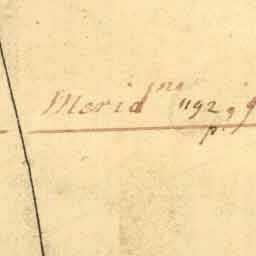 Merid^ne 1192
p.